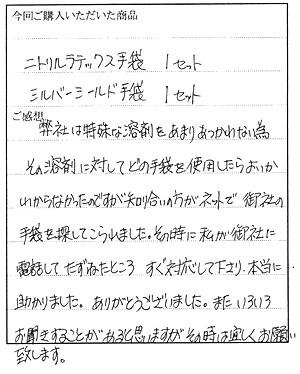 今回ご購入いただいた商品
ニトリルラテックス手袋 1セット
シルバーシールド手袋 1セット
ご感想
弊社は特殊な溶剤をあまりあつかわない為
その溶剤に対してどの手袋を使用したらよいか
わからなかったのですが知り合いの方がネットで御社の
手袋を探してこられました。その時に私が御社に
電話してたずねたところ すぐ対応して下さり、本当に
助かりました。ありがとうございました。またいろいろ
お聞きすることがあると思いますがその時は宜しくお願い
致します。